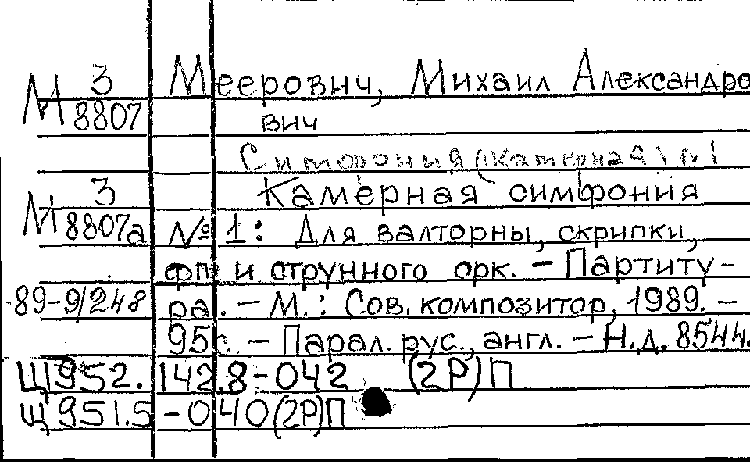 М 3/8807 Меерович, Михаил Александро
вич
Симфония (камерная) №1
М 3/8807а Камерная симфония
№ 1: Для валторны, скрипки,
фп и струнного орк. – Партиту-
89-9/248 ра. – М.: Сов. композитор, 1989. –
95с. – Парал. рус., англ. – Н.д. 8544.
Щ952.142.8-042 (2Р)П
Щ951.5-040(2Р)П